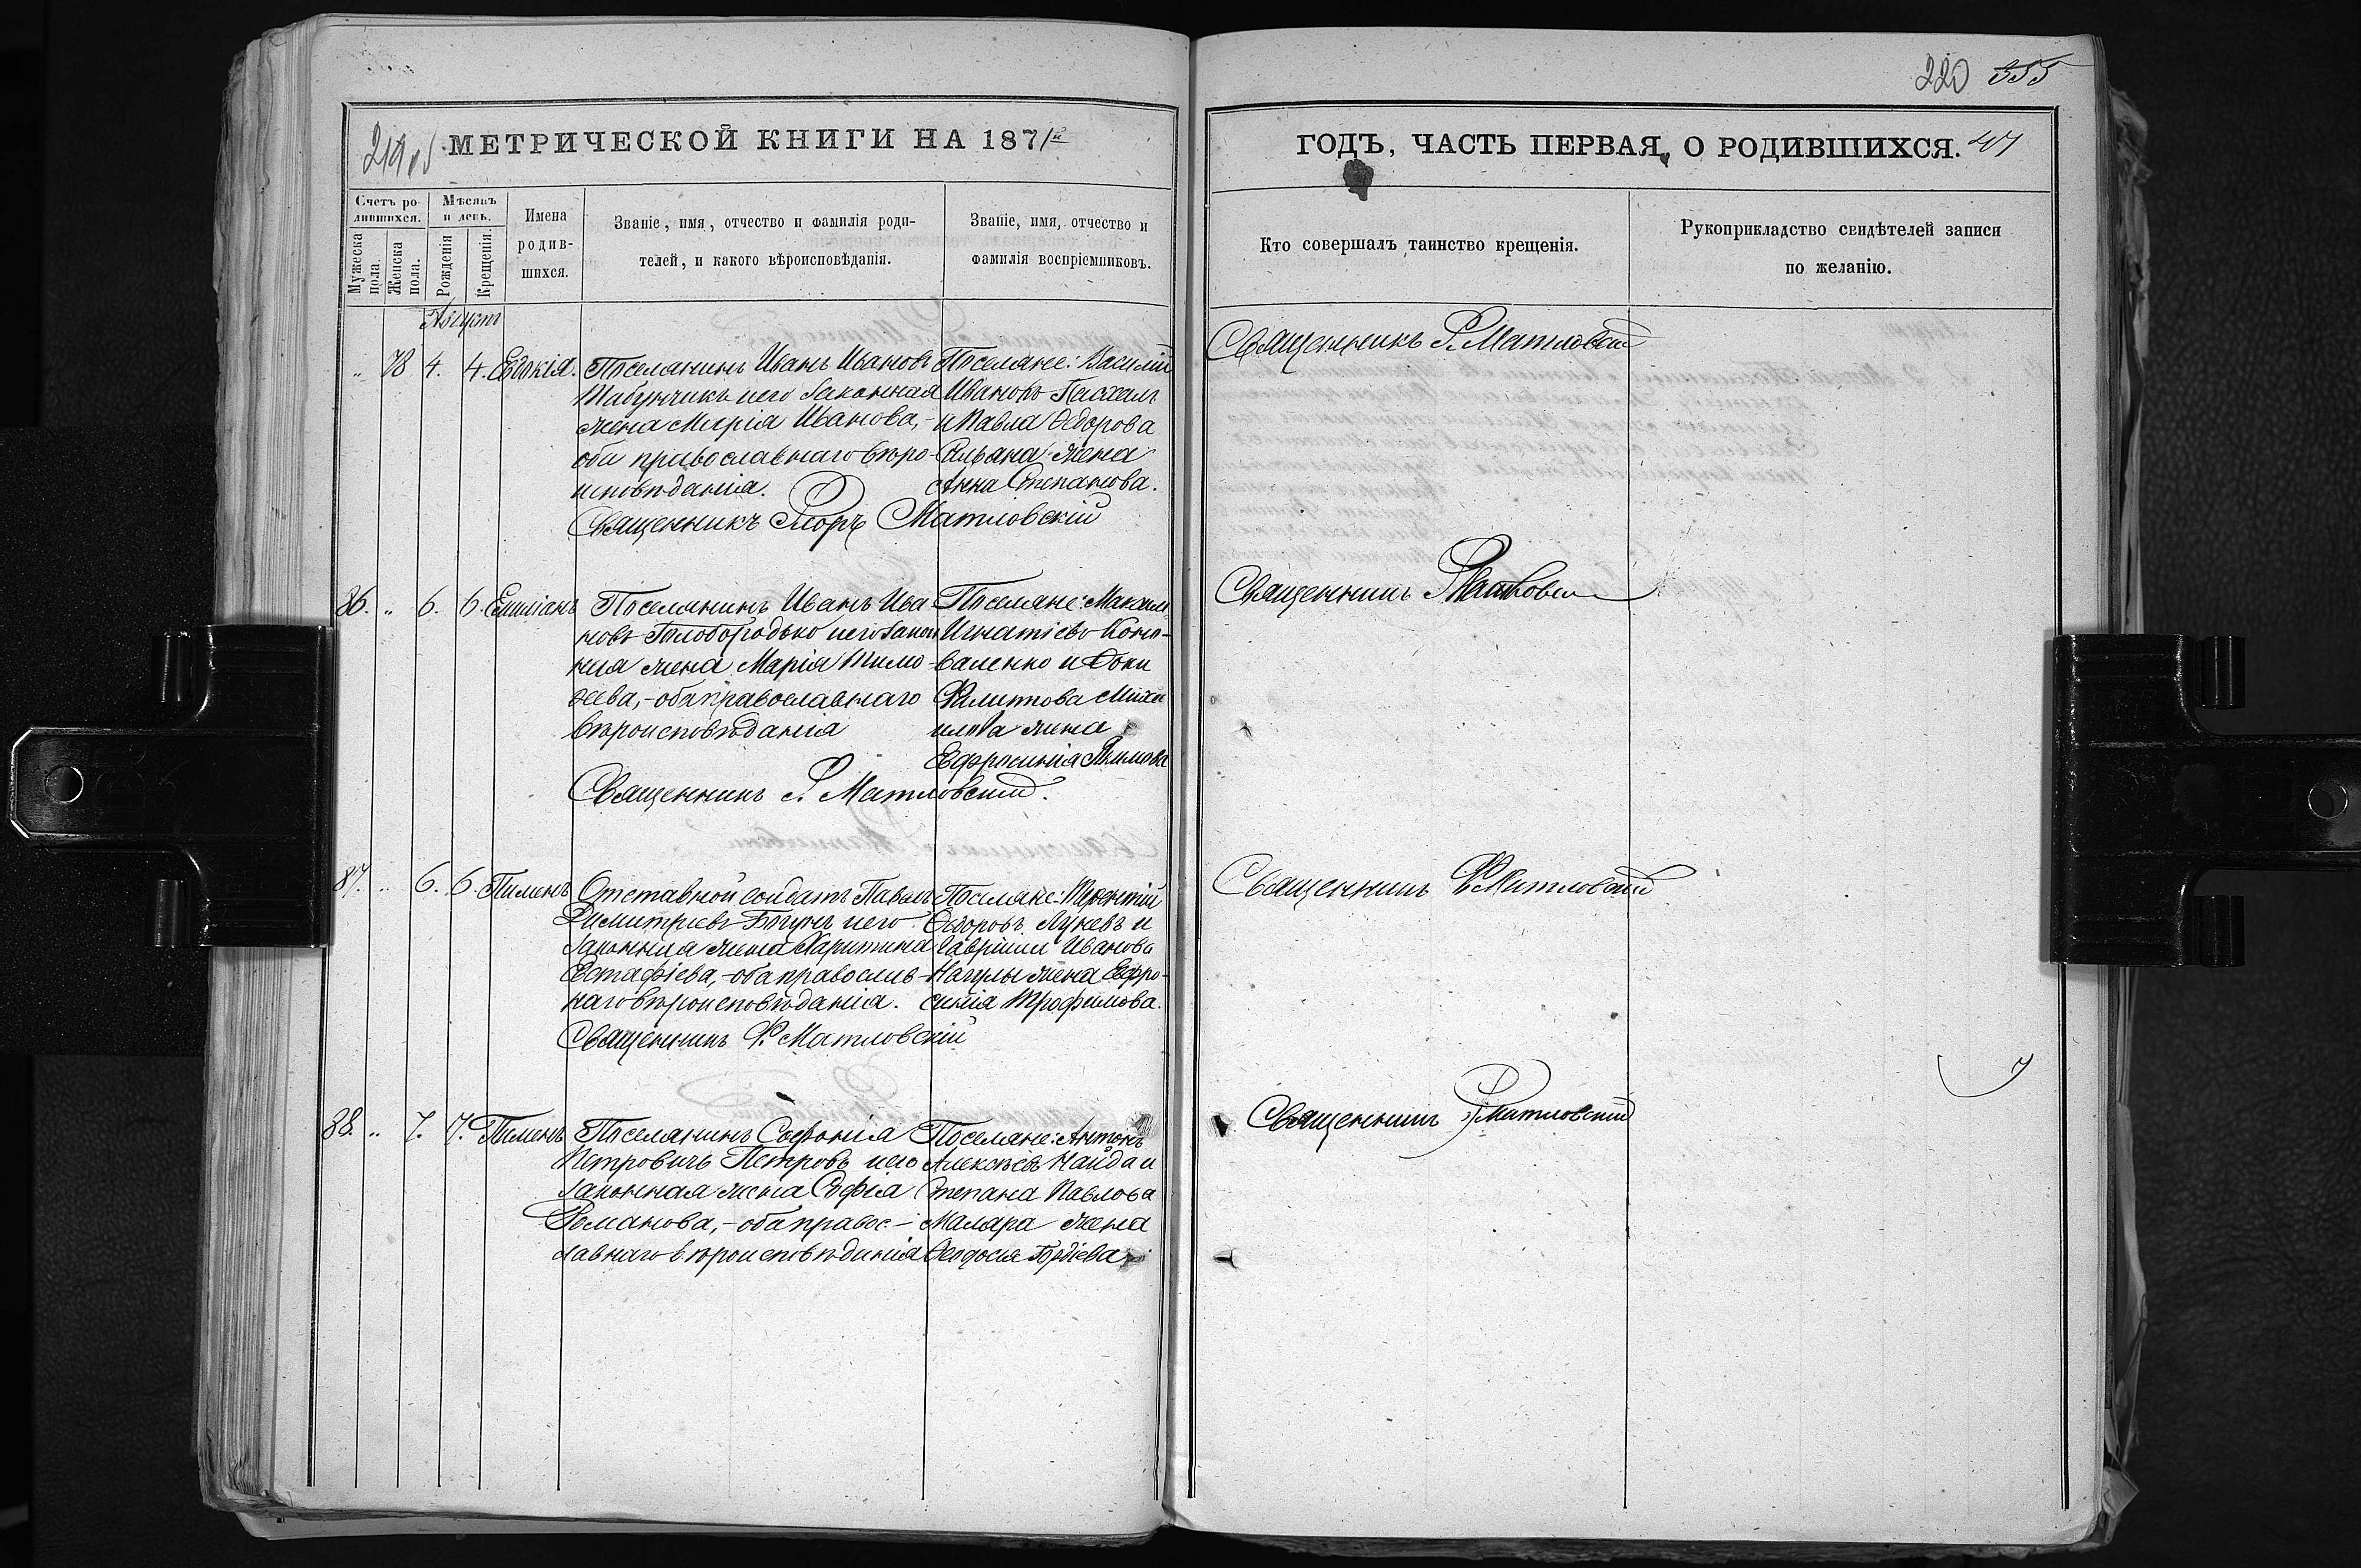 220 355
МЕТРИЧЕСКОЙ КНИГИ НА 1871й
ГОДЪ, ЧАСТЬ ПЕРВАЯ, О РОДИВШИХСЯ. 47
Счетъ родившихся.
Мѣсяцъ и день.
Мужеска пола.
Женска пола.
Рожденія
Крещенія.
Имена родившихся.
Званіе, имя, отчество и фамилія роди-
телей, и какого вѣроисповѣданія.
Званіе, имя, отчество и
фамилія воспріемниковъ.
Кто совершалъ таинство крещенія.
Рукоприкладство свидѣтелей записи
по желанію.
Августъ
„ 78 4. 4. Евдокія.
Поселянинъ Иванъ Ивановъ
Табунчикъ и его законная
жена Марія Иванова,-
оба православнаго вѣро-
исповѣданія.
Поселяне: Василій
Ивановъ Пасхалъ
и Павла Ѳедорова
жена
Анна Степанова.
Священникъ Флоръ Матловскій
Священникъ Ф. Матловскій
86. „ 6. 6. Емиліанъ
Поселянинъ Иванъ Ива
новъ Голобородько и его закон
ная жена Марія Тимо-
ѳеева,-оба православнаго
вѣроисповѣданія
Поселяне: Максимъ
Игнатіевъ Коно-
валенко и Ѳоки
Филиппова Миха
илова жена
Ефросинія
Священникъ Ф. Матловскій.
Священникъ Ф Матловскій
87. „ 6. 6. Пименъ
Отставной солдатъ Павелъ
Димитріевъ Богунъ и его
законная жена Харитина
Евстафіева,-оба православ-
наго вѣроисповѣданія.
Поселяне: Терентій
Ѳедоровъ и
Гавріила Иванова
Нагулы жена Евфро-
синія Трофимова.
Священникъ Ф. Матловскій
Священникъ Ф Матловскій
88. „ 7. 7. Пименъ
Поселянинъ Софонія
Петровичъ Петровъ и его
законная жена Софія
Романова,-оба правос-
лавнаго вѣроисповѣданія
Поселяне: Антонъ
Алексѣевъ Найда и
Степана Павлова
Маляра жена
Ѳеодосія Гордіева.
Священникъ Ф Матловскій